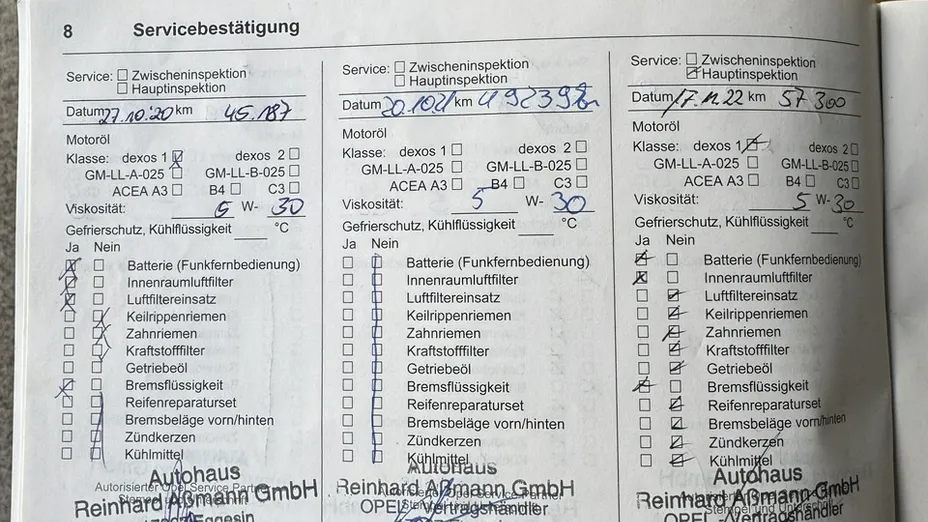 8 Servicebestätigung
Service: Zwischeninspektion
Hauptinspektion
Datum 27.10.'20 km 45.187
Motoröl
Klasse: dexos 1 dexos 2
GM-LL-A-025 GM-LL-B-025
ACEA A3 B4 C3
Viskosität: 5 W- 30
Gefrierschutz, Kühlflüssigkeit °C
Ja Nein
Batterie (Funkfernbedienung)
Innenraumluftfilter
Luftfiltereinsatz
Keilrippenriemen
Zahnriemen
Kraftstofffilter
Getriebeöl
Bremsflüssigkeit
Reifenreparaturset
Bremsbeläge vorn/hinten
Zündkerzen
Kühlmittel
Autohaus
Autorisierter Opel Service Partner
Reinhard Aßmann GmbH
Eggesin
Service: Zwischeninspektion
Hauptinspektion
Datum 20.10.21 km 49239
Motoröl
Klasse: dexos 1 dexos 2
GM-LL-A-025 GM-LL-B-025
ACEA A3 B4 C3
Viskosität: 5 W- 30
Gefrierschutz, Kühlflüssigkeit °C
Ja Nein
Batterie (Funkfernbedienung)
Innenraumluftfilter
Luftfiltereinsatz
Keilrippenriemen
Zahnriemen
Kraftstofffilter
Getriebeöl
Bremsflüssigkeit
Reifenreparaturset
Bremsbeläge vorn/hinten
Zündkerzen
Kühlmittel
Autohaus
Reinhard Aßmann GmbH
OPEL-Vertragshändler
Service: Zwischeninspektion
Hauptinspektion
Datum 17.11.22 km 57300
Motoröl
Klasse: dexos 1 dexos 2
GM-LL-A-025 GM-LL-B-025
ACEA A3 B4 C3
Viskosität: 5 W- 30
Gefrierschutz, Kühlflüssigkeit °C
Ja Nein
Batterie (Funkfernbedienung)
Innenraumluftfilter
Luftfiltereinsatz
Keilrippenriemen
Zahnriemen
Kraftstofffilter
Getriebeöl
Bremsflüssigkeit
Reifenreparaturset
Bremsbeläge vorn/hinten
Zündkerzen
Kühlmittel
Autohaus
Reinhard Aßmann GmbH
OPEL-Vertragshändler